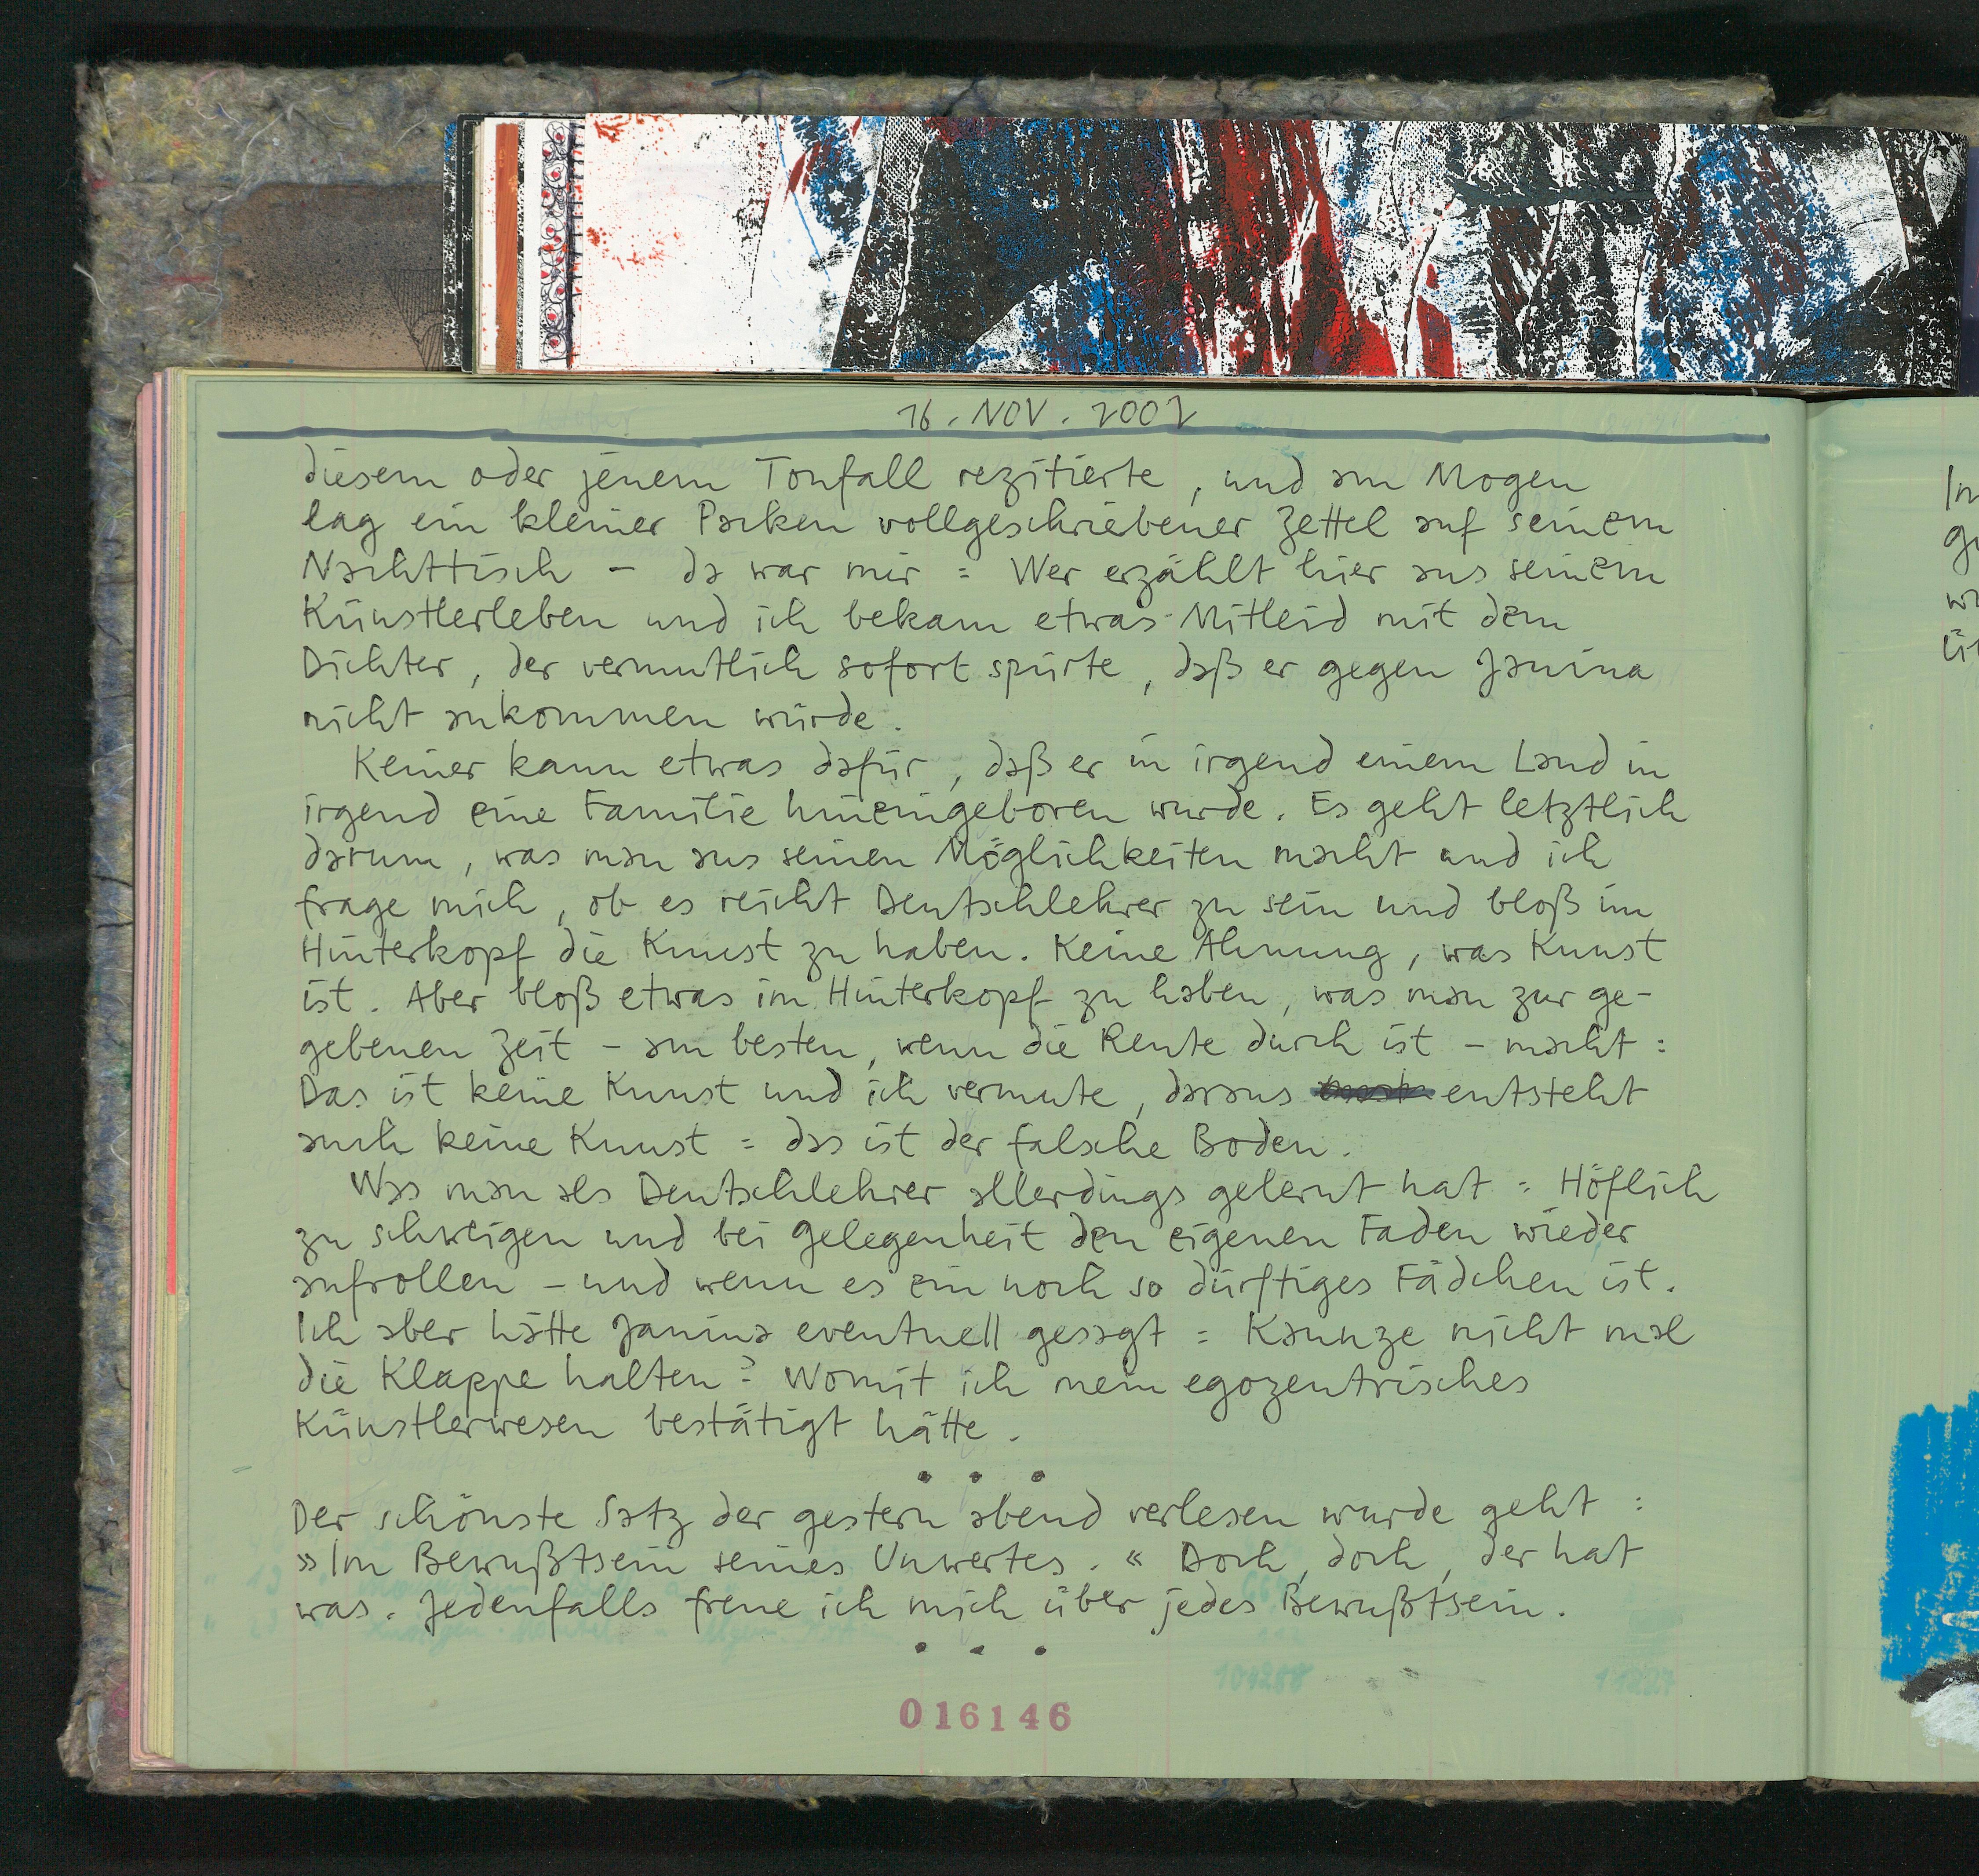 16. NOV. 2002
diesem oder jenem Tonfall rezitierte, und am Mogen
lag ein kleiner Packen vollgeschriebener Zettel auf seinem
Nachttisch – da war mir: Wer erzählt hier aus seinem
Künstlerleben und ich bekam etwas Mitleid mit dem
Dichter, der vermutlich sofort spürte, daß er gegen Janina
nicht ankommen würde.
Keiner kann etwas dafür, daß er in irgend einem Land in
irgend eine Familie hineingeboren wurde. Es geht letztlich
darum, was man aus seinen Möglichkeiten macht und ich
frage mich, ob es reicht Deutschlehrer zu sein und bloß im
Hinterkopf die Kunst zu haben. Keine Ahnung, was Kunst
ist. Aber bloß etwas im Hinterkopf zu haben, was man zur ge-
gebenen Zeit – am besten, wenn die Rente durch ist – macht:
Das ist keine Kunst und ich vermute, daraus entsteht
auch keine Kunst: das ist der falsche Boden.
Was man als Deutschlehrer allerdings gelernt hat: Höflich
zu schweigen und bei Gelegenheit den eigenen Faden wieder
aufrollen – und wenn es ein noch so dürftiges Fädchen ist.
Ich aber hätte Janina eventuell gesagt: Kannze nicht mal
die Klappe halten? Womit ich mein egozentrisches
Künstlerwesen bestätigt hätte.
• • •
Der schönste Satz der gestern abend verlesen wurde geht:
»Im Bewußtsein seines Unwertes.« Doch, doch, der hat
was. Jedenfalls freue ich mich über jedes Bewußtsein.
• • •
016146